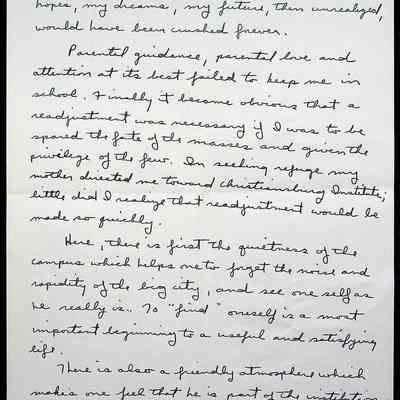 hopes, my dreams, my future, then unrealized,
would have been crushed forever.
Parental guidance, parental love and
attention at its best failed to keep me in
school. Finally it became obvious that a
readjustment was necessary if I was to be
spared the fate of the masses and given the
privilege of the few. In seeking refuge my
mother directed me toward Christiansburg Institute;
little did I realize that readjustment would be
made so quickly.
Here, there is first the quietness of the
campus which helps one to forget the noise and
rapidity of the big city, and see one self as
he really is.. To "find" oneself is a most
important beginning to a useful and satisfying
life.
There is also a friendly atmosphere which
makes one feel that he is part of the institution